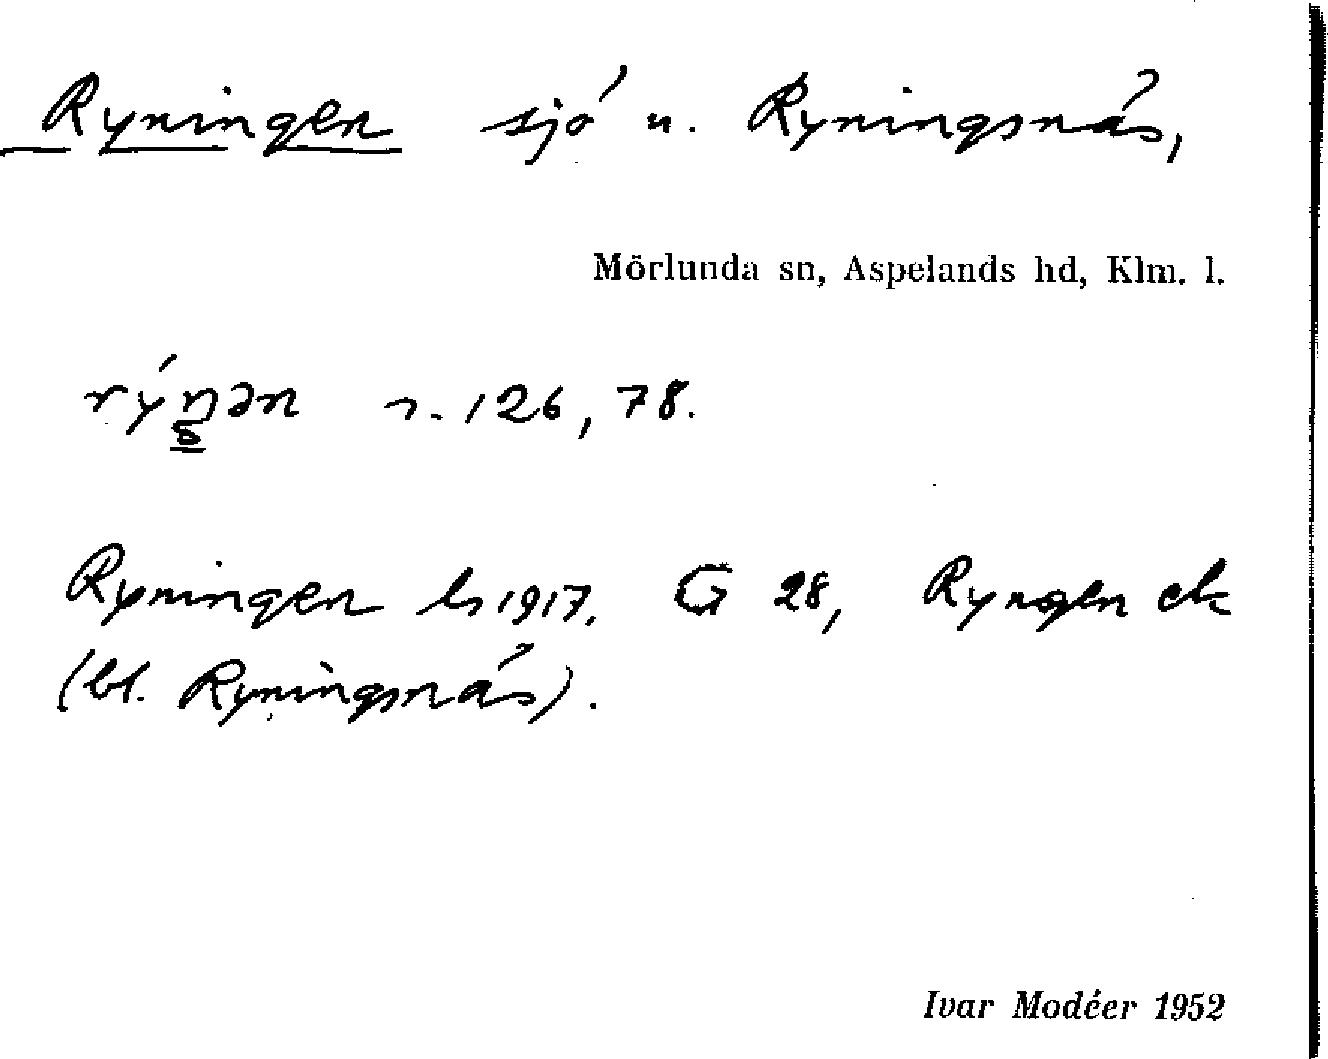 Ryningen sjö n. Ryningsnäs,
Mörlunda sn, Aspelands hd, Klm. l.
rýŋən s. 126, 78.
Ryningen ls 1917. G 28, Ryngen ek
(bl. Ryningsnäs).
Ivar Modéer 1952